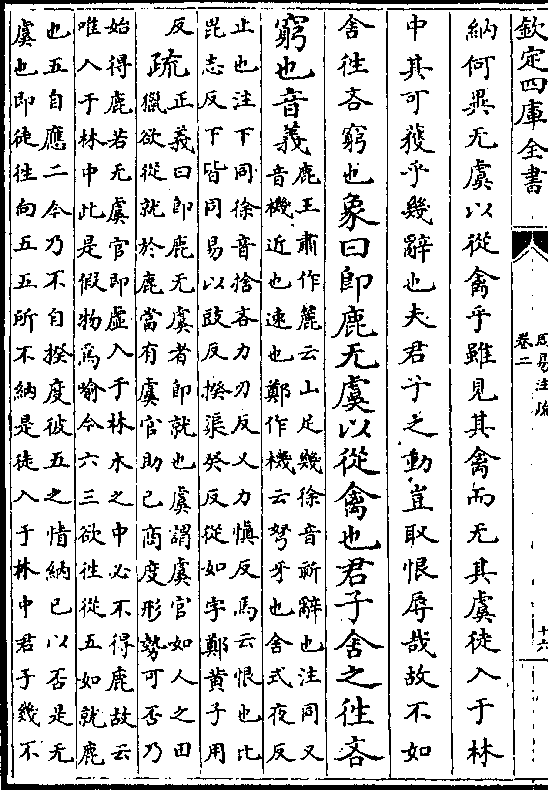 欽定四庫全書
周易注疏
卷二
十六
納何異无虞以從禽乎雖見其禽而无其虞徒入于林
中其可獲乎幾辭也夫君子之動豈取恨辱哉故不如
舍往吝窮也象曰即鹿无虞以從禽也君子舍之往吝
窮也音義
鹿王肅作麓云山足幾徐音祈辭也注同又
音機近也速也鄭作機云弩牙也舍式夜反
止也注下同徐音捨吝力刃反又力慎反馬云恨也比
毗志反下皆同易以豉反揆渠癸反從如字鄭黄子用
反
疏
正義曰即鹿无虞者即就也虞謂虞官如人之田
獵欲從就於鹿當有虞官助己商度形勢可否乃
始得鹿若无虞官即虛入于林木之中必不得鹿故云
唯入于林中此是假物為喻今六三欲往從五如就鹿
也五自應二今乃不自揆度彼五之情納己以否是无
虞也即徒往向五五所不納是徒入于林中君子幾不